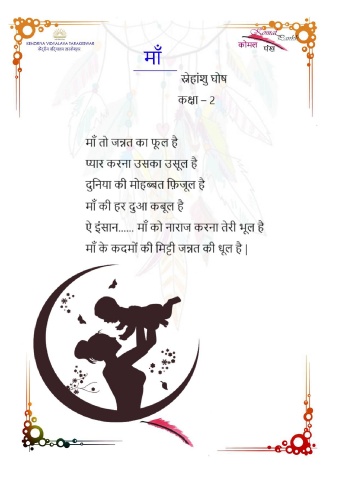 KENDRIYA VIDYALAYA TARAKESWAR
केंद्रीय विद्यालय तारकेश्वर
Komal Pankh
कोमल पंख
माँ
स्नेहांशु घोष
कक्षा – 2
माँ तो जन्नत का फूल है
प्यार करना उसका उसूल है
दुनिया की मोहब्बत फ़िजूल है
माँ की हर दुआ कबूल है
ऐ इंसान...... माँ को नाराज करना तेरी भूल है
माँ के कदमों की मिट्टी जन्नत की धूल है |